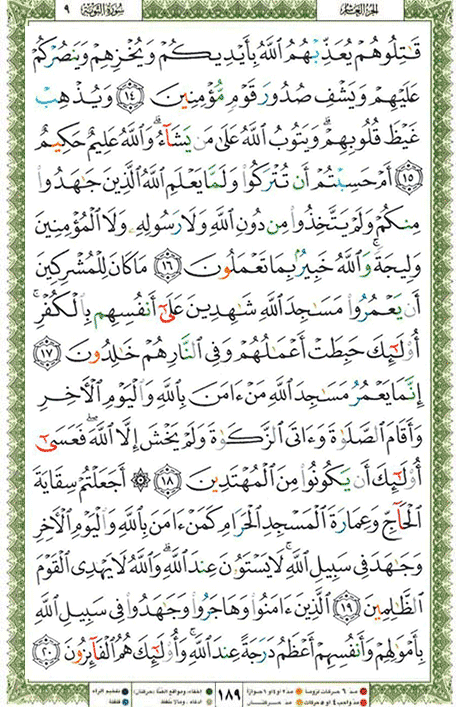 سُورَةُ التَّوْبَةِ ٩ الجزء العاشر
قَٰتِلُوهُمْ يُعَذِّبْهُمُ ٱللَّهُ بِأَيْدِيكُمْ وَيُخْزِهِمْ وَيَنصُرْكُمْ
عَلَيْهِمْ وَيَشْفِ صُدُورَ قَوْمٍ مُّؤْمِنِينَ ١٤ وَيُذْهِبْ
غَيْظَ قُلُوبِهِمْ ۗ وَيَتُوبُ ٱللَّهُ عَلَىٰ مَن يَشَآءُ ۗ وَٱللَّهُ عَلِيمٌ حَكِيمٌ
١٥ أَمْ حَسِبْتُمْ أَن تُتْرَكُوا۟ وَلَمَّا يَعْلَمِ ٱللَّهُ ٱلَّذِينَ جَٰهَدُوا۟
مِنكُمْ وَلَمْ يَتَّخِذُوا۟ مِن دُونِ ٱللَّهِ وَلَا رَسُولِهِۦ وَلَا ٱلْمُؤْمِنِينَ
وَلِيجَةً ۚ وَٱللَّهُ خَبِيرٌۢ بِمَا تَعْمَلُونَ ١٦ مَا كَانَ لِلْمُشْرِكِينَ
أَن يَعْمُرُوا۟ مَسَٰجِدَ ٱللَّهِ شَٰهِدِينَ عَلَىٰٓ أَنفُسِهِم بِٱلْكُفْرِ ۚ
أُو۟لَٰٓئِكَ حَبِطَتْ أَعْمَٰلُهُمْ وَفِى ٱلنَّارِ هُمْ خَٰلِدُونَ ١٧
إِنَّمَا يَعْمُرُ مَسَٰجِدَ ٱللَّهِ مَنْ ءَامَنَ بِٱللَّهِ وَٱلْيَوْمِ ٱلْءَاخِرِ
وَأَقَامَ ٱلصَّلَوٰةَ وَءَاتَى ٱلزَّكَوٰةَ وَلَمْ يَخْشَ إِلَّا ٱللَّهَ ۖ فَعَسَىٰٓ
أُو۟لَٰٓئِكَ أَن يَكُونُوا۟ مِنَ ٱلْمُهْتَدِينَ ١٨ ۞ أَجَعَلْتُمْ سِقَايَةَ
ٱلْحَآجِّ وَعِمَارَةَ ٱلْمَسْجِدِ ٱلْحَرَامِ كَمَنْ ءَامَنَ بِٱللَّهِ وَٱلْيَوْمِ ٱلْءَاخِرِ
وَجَٰهَدَ فِى سَبِيلِ ٱللَّهِ ۚ لَا يَسْتَوُۥنَ عِندَ ٱللَّهِ ۗ وَٱللَّهُ لَا يَهْدِى ٱلْقَوْمَ
ٱلظَّٰلِمِينَ ١٩ ٱلَّذِينَ ءَامَنُوا۟ وَهَاجَرُوا۟ وَجَٰهَدُوا۟ فِى سَبِيلِ ٱللَّهِ
بِأَمْوَٰلِهِمْ وَأَنفُسِهِمْ أَعْظَمُ دَرَجَةً عِندَ ٱللَّهِ ۚ وَأُو۟لَٰٓئِكَ هُمُ ٱلْفَآئِزُونَ ٢٠
مد ٦ حركات لزوماً مد ٢ او ٤ او ٦ جوازاً
١٨٩
إخفاء، ومواقع الغنة (حركتان) تفخيم الراء
مد واجب ٤ او ٥ حركات مد حركتان
إدغام، وما لا يلفظ قلقلة